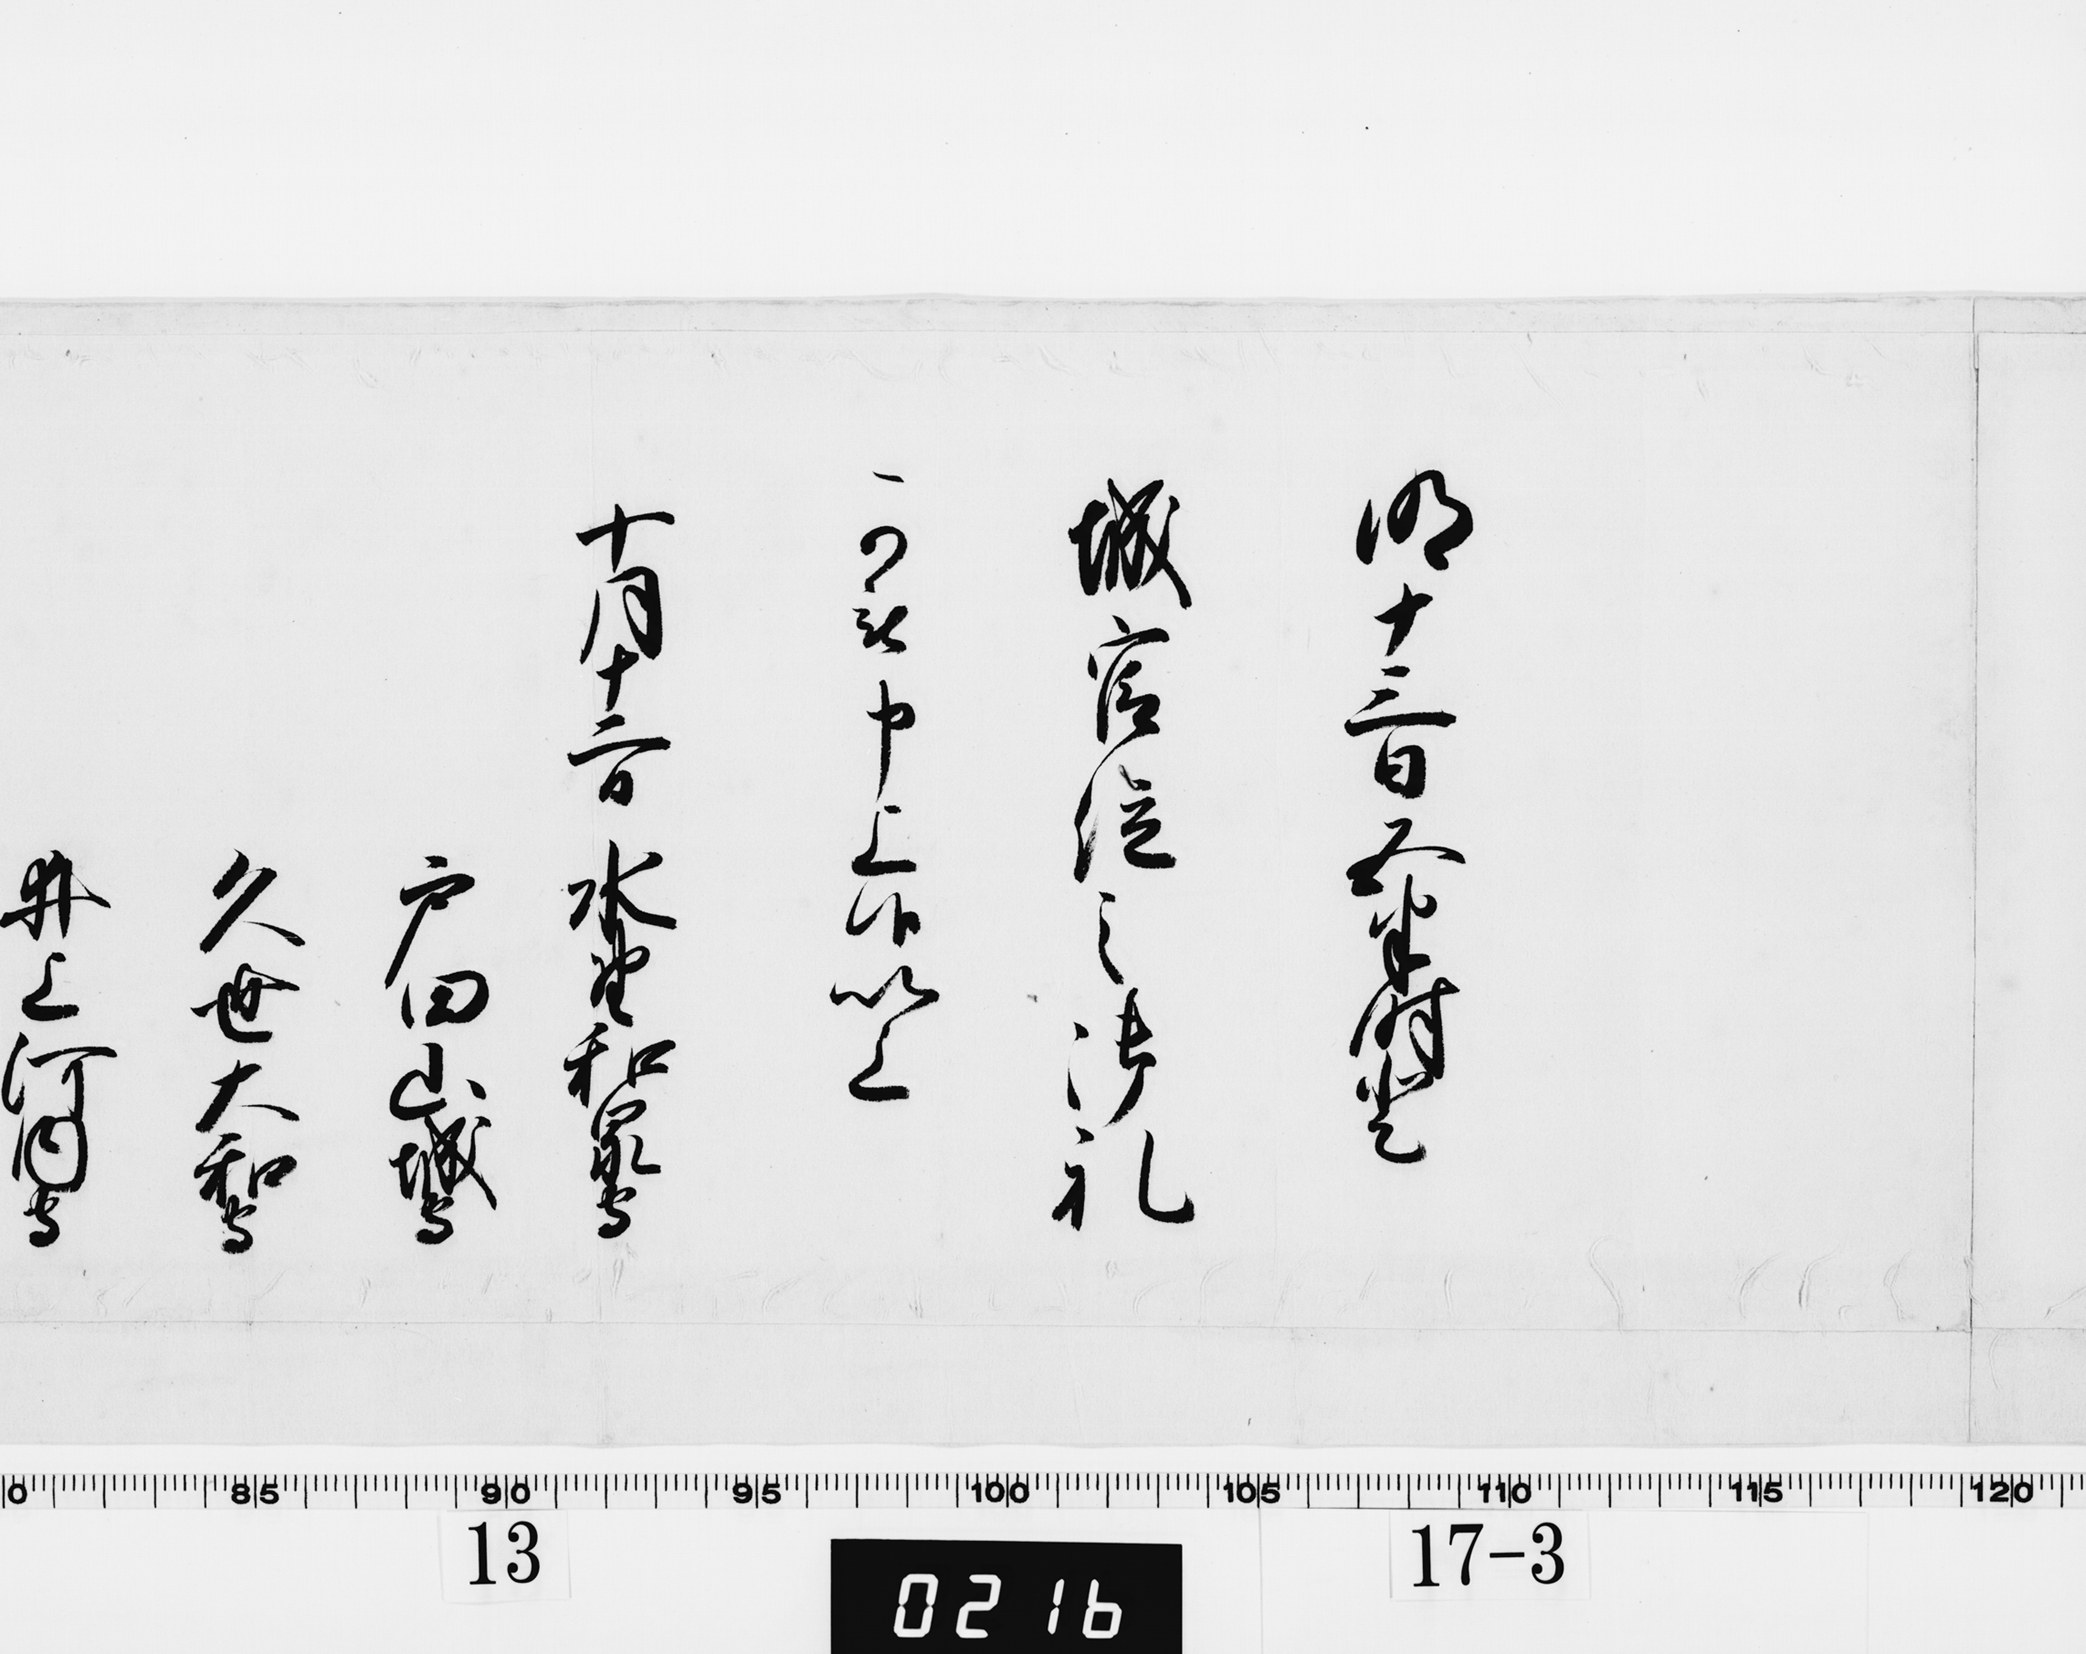 明十三日五半時登
城官位之御礼
可被申上候以上
十月十二日 水野和泉守
戸田山城守
久世大和守
井上河内守
0 85 90 95 100 105 110 115 120
13
17-3
0216